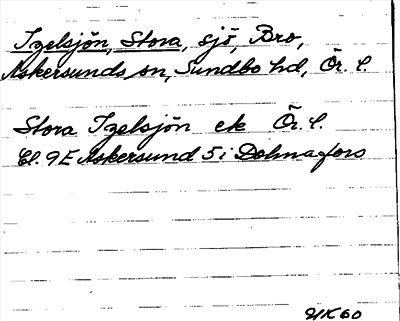 Igelsjön, Stora, sjö, Bro,
Askersunds sn, Sundbo hd, Ör. l.
Stora Igelsjön ek Ör. l.
Bl. 9E Askersund 5i Dohnafors
HK 60